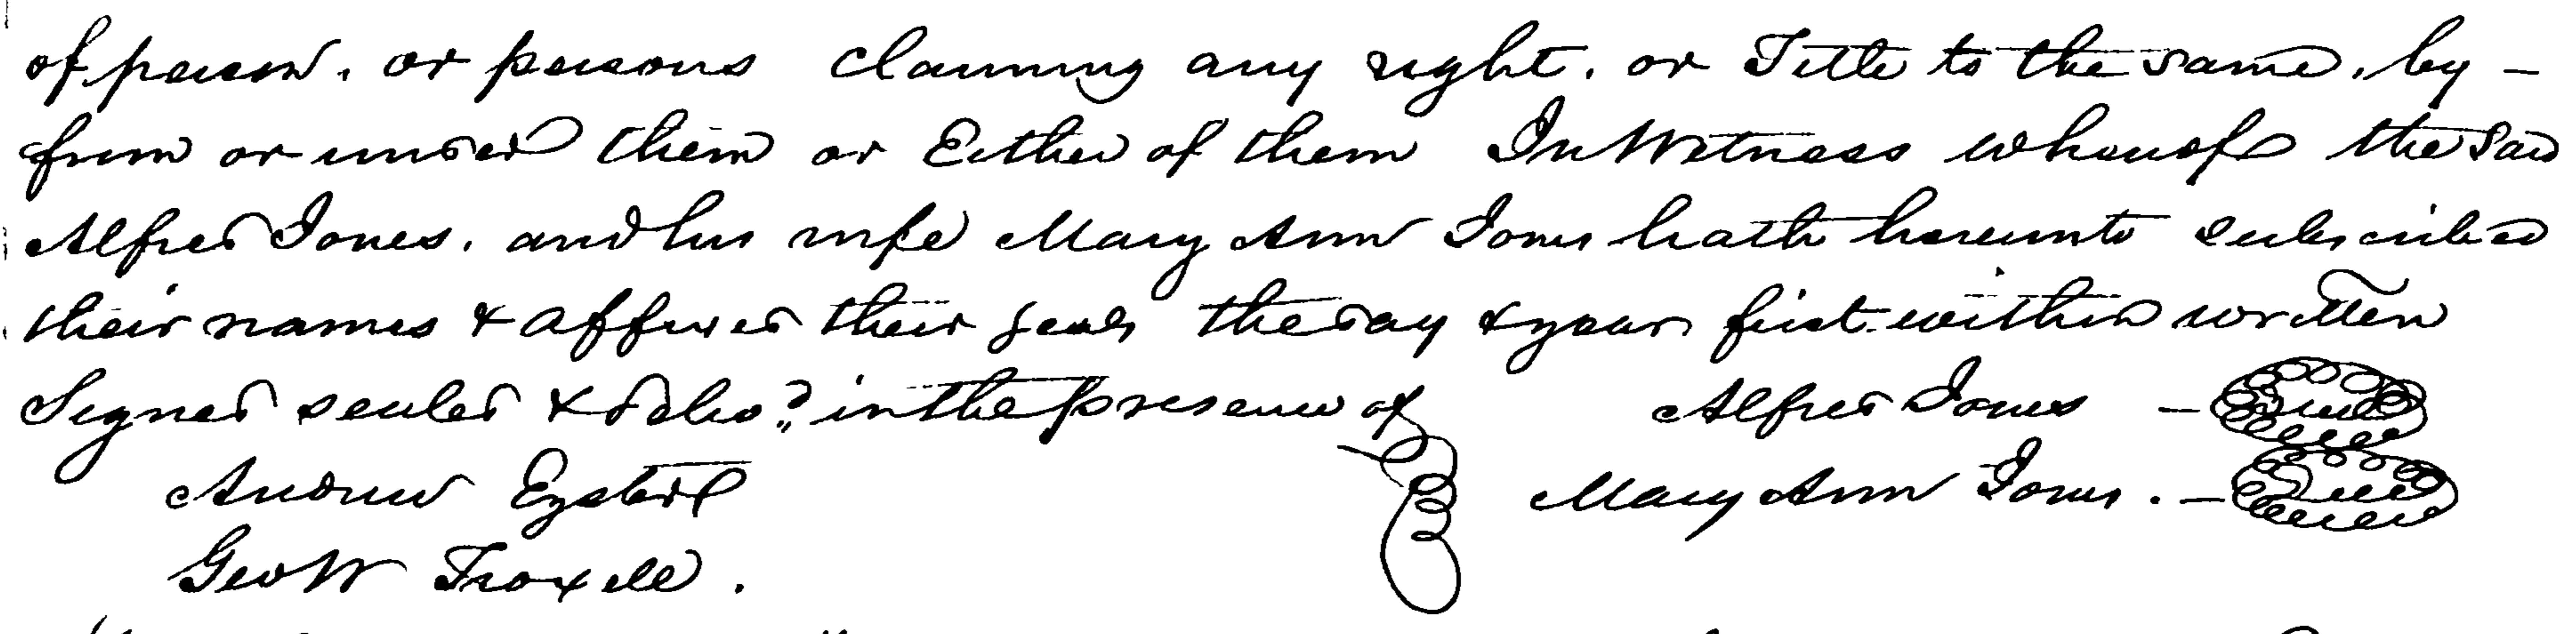 of person, or persons claiming any right, or Title to the same, by -
from or under them or Either of them In Witness whereof the Said
Alfred Jones, and his wife Mary Ann Jones hath hereunto subscribed
their names & affixed their seals the day & year first within written
Signed sealed & deliv? in the presence of Alfred Jones - Seal
Andrew Mary Ann Jones. - Seal
Geo W Troxell.